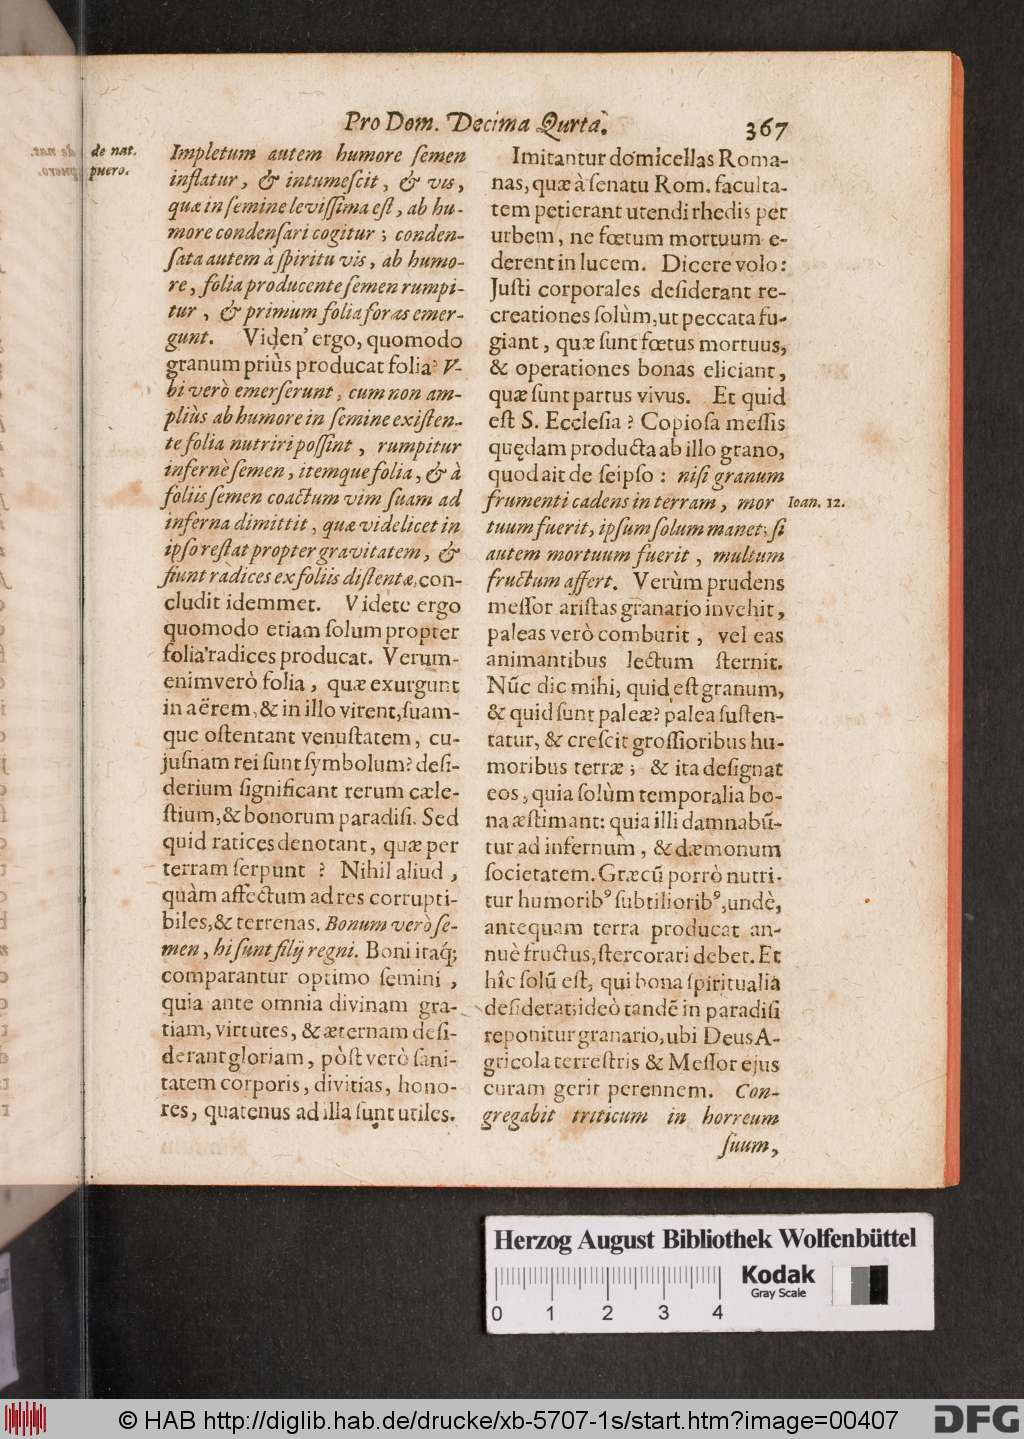 Pro Dom. Decima Qurta.
367
de nat.
puero.
Impletum autem humore ſemen
inflatur, & intumeſcit, & vis,
quæ in ſemine leviſſima eſt, ab hu-
more condenſari cogitur; conden-
ſata autem à ſpiritu vis, ab humo-
re, folia producente ſemen rumpi-
tur, & primium folia foras emer-
gunt. Viden' ergo, quomodo
granum priùs producat folia? V-
bi verò emerſerunt, cum non am-
pliùs ab humore in ſemine exiſten-
te folia nutriri poſſint, rumpitur
infernè ſemen, itemque folia, & à
foliis ſemen coactum vim ſuam ad
inferna dimittit, quæ videlicet in
ipſo reſtat propter gravitatem, &
fiunt radices ex foliis diſtentæ, con-
cludit idemmet. Videte ergo
quomodo etiam ſolum propter
folia radices producat. Verum-
enimverò folia, quæ exurgunt
in aërem, & in illo virent, ſuam-
que oſtentant venuſtatem, cu-
juſnam rei ſunt ſymbolum? deſi-
derium ſignificant rerum cæle-
ſtium, & bonorum paradiſi. Sed
quid ratices denotant, quæ per
terram ſerpunt? Nihil aliud,
quàm affectum ad res corrupti-
biles, & terrenas. Bonum verò ſe-
men, hi ſunt filij regni. Boni itaq́;
comparantur optimo ſemini,
quia ante omnia divinam gra-
tiam, virtutes, & æternam deſi-
derant gloriam, pòſt verò ſani-
tatem corporis, divitias, hono-
res, quatenus ad illa ſunt utiles.
Imitantur domicellas Roma-
nas, quæ à ſenatu Rom. faculta-
tem petierant utendi rhedis per
urbem, ne fœtum mortuum e-
derent in lucem. Dicere volo:
Juſti corporales deſiderant re-
creationes ſolùm, ut peccata fu-
giant, quæ ſunt fœtus mortuus,
& operationes bonas eliciant,
quæ ſunt partus vivus. Et quid
eſt S. Eccleſia? Copioſa meſſis
quędam producta ab illo grano,
quod ait de ſeipſo: niſi granum
frumenti cadens in terram, mor
tuum fuerit, ipſum ſolum manet; ſi
autem mortuum fuerit, multum
fructum affert. Verùm prudens
meſſor ariſtas granario invehit,
paleas verò comburit, vel eas
animantibus lectum ſternit.
Nũc dic mihi, quid eſt granum,
& quid ſunt paleæ? palea ſuſten-
tatur, & creſcit groſſioribus hu-
moribus terræ; & ita deſignat
eos, quia ſolùm temporalia bo-
na æſtimant: quia illi damnabũ-
tur ad infernum, & dæmonum
ſocietatem. Græcũ porrò nutri-
tur humoribꝰ ſubtilioribꝰ, undè,
antequam terra producat an-
nuè fructus, ſtercorari debet. Et
hîc ſolũ eſt, qui bona ſpiritualia
deſiderat; ideò tandẽ in paradiſi
reponitur granario, ubi Deus A-
gricola terreſtris & Meſſor ejus
curam gerit perennem. Con-
gregabit triticum in horreum
ſuum,
Ioan. 12.
Herzog August Bibliothek Wolfenbüttel
Kodak
Gray Scale
0 1 2 3 4
© HAB http://diglib.hab.de/drucke/xb-5707-1s/start.htm?image=00407
DFG